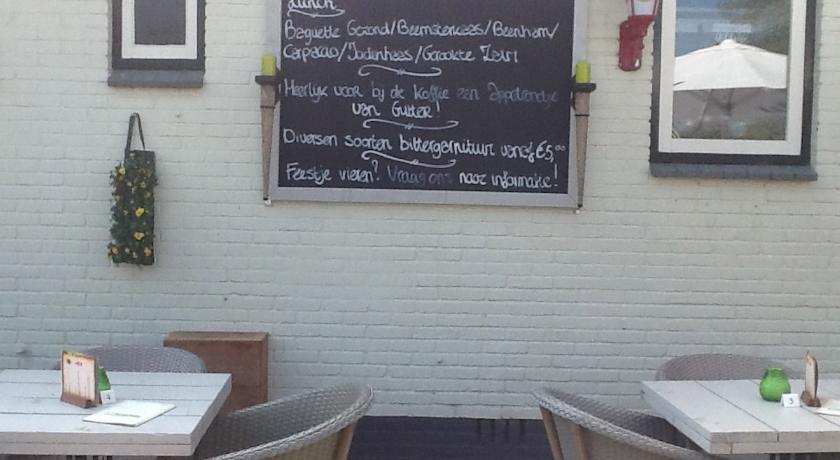 Lunch
Baguette Gezond/Beemsterkaas/Beenham/
Carpacio/Jodenhaas/Gerookte Zalm
Heerlijk voor bij de koffie een appelrondje
van Gutter!
Diversen soorten bittergarnituur vanaf €5,00
Feestje vieren? Vraag ons naar informatie!
4
3